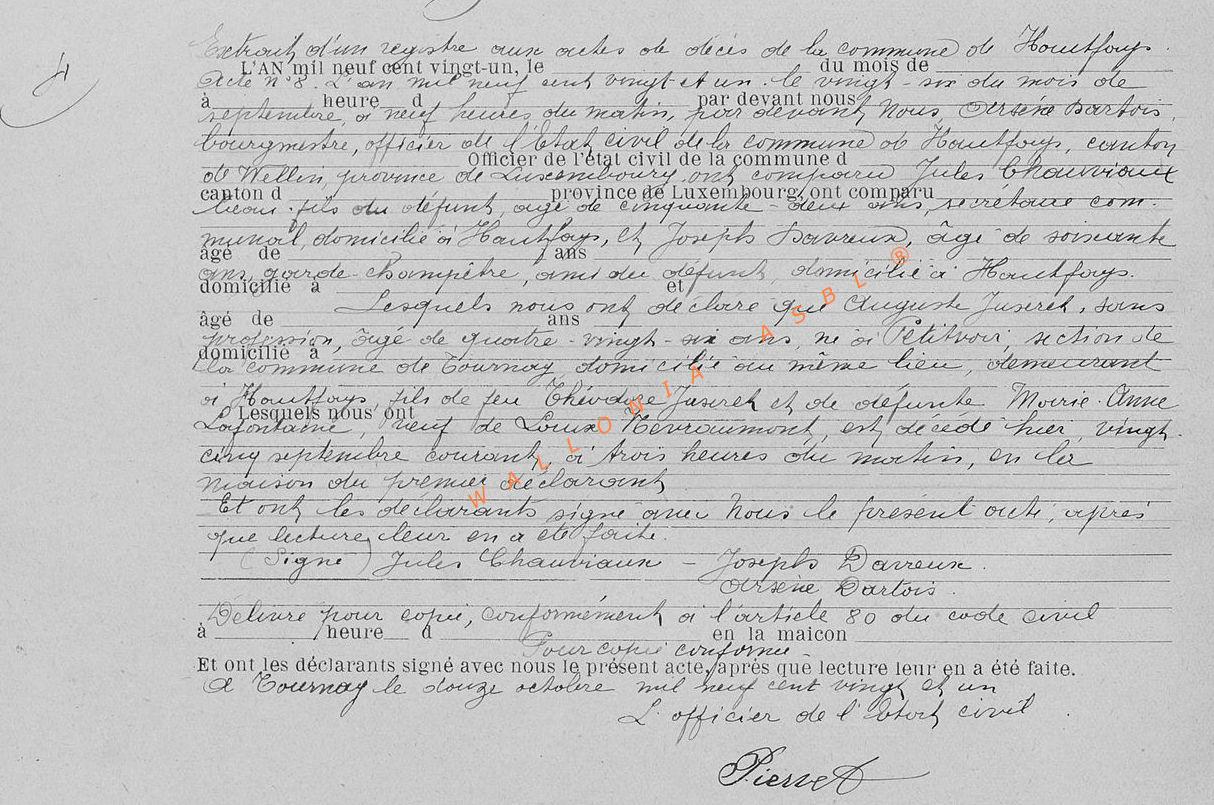 4
Extrait d'un registre aux actes de décès de la commune de Hautfays.
L'AN mil neuf cent vingt-un, le du mois de
Acte n° 8. L'an mil neuf cent vingt et un. le vingt-six du mois de
à heure d par devant nous
septembre, à neuf heures du matin, par devant Nous, Arsène Dartois
bourgmestre, officier de l'Etat civil de la commune de Hautfays, canton
Officier de l'état civil de la commune d
de Wellin, province de Luxembourg, ont comparu Jules Chauviaux
canton d province de Luxembourg, ont comparu
beau-fils du défunt, âgé de cinquante-deux ans, secrétaire com-
munal, domicilié à Hautfays, et Joseph Davreux, âgé de soixante
âgé de ans
ans, garde-champêtre, ami du défunt, domicilié à Hautfays.
domicilié à et
Lesquels nous ont déclaré que Auguste Juseret, sans
âgé de ans
profession, âgé de quatre-vingt-six ans, né à Petitvoir, section de
domicilié à
la commune de Tournay, domicilié au même lieu, demeurant
à Hautfays, fils de feu Juseret et de défunte Marie-Anne
Lesquels nous ont
Lafontaine, veuf de Nevraumont, est décédé hier, vingt-
cinq septembre courant, à trois heures du matin, en la
maison du premier déclarant
Et ont les déclarants signé avec Nous le présent acte, après
que lecture leur en a été faite.
(Signé) Jules Chauviaux - Joseph Davreux.
Arsène Dartois.
Délivré pour copie, conformément à l'article 80 du code civil
à heure d en la maicon
Pour copie conforme -
Et ont les déclarants signé avec nous le présent acte, après que lecture leur en a été faite.
A Tournay le douze octobre mil neuf cent vingt et un
L'officier de l'Etat civil
Pierret
WALLONIA ASBL ®